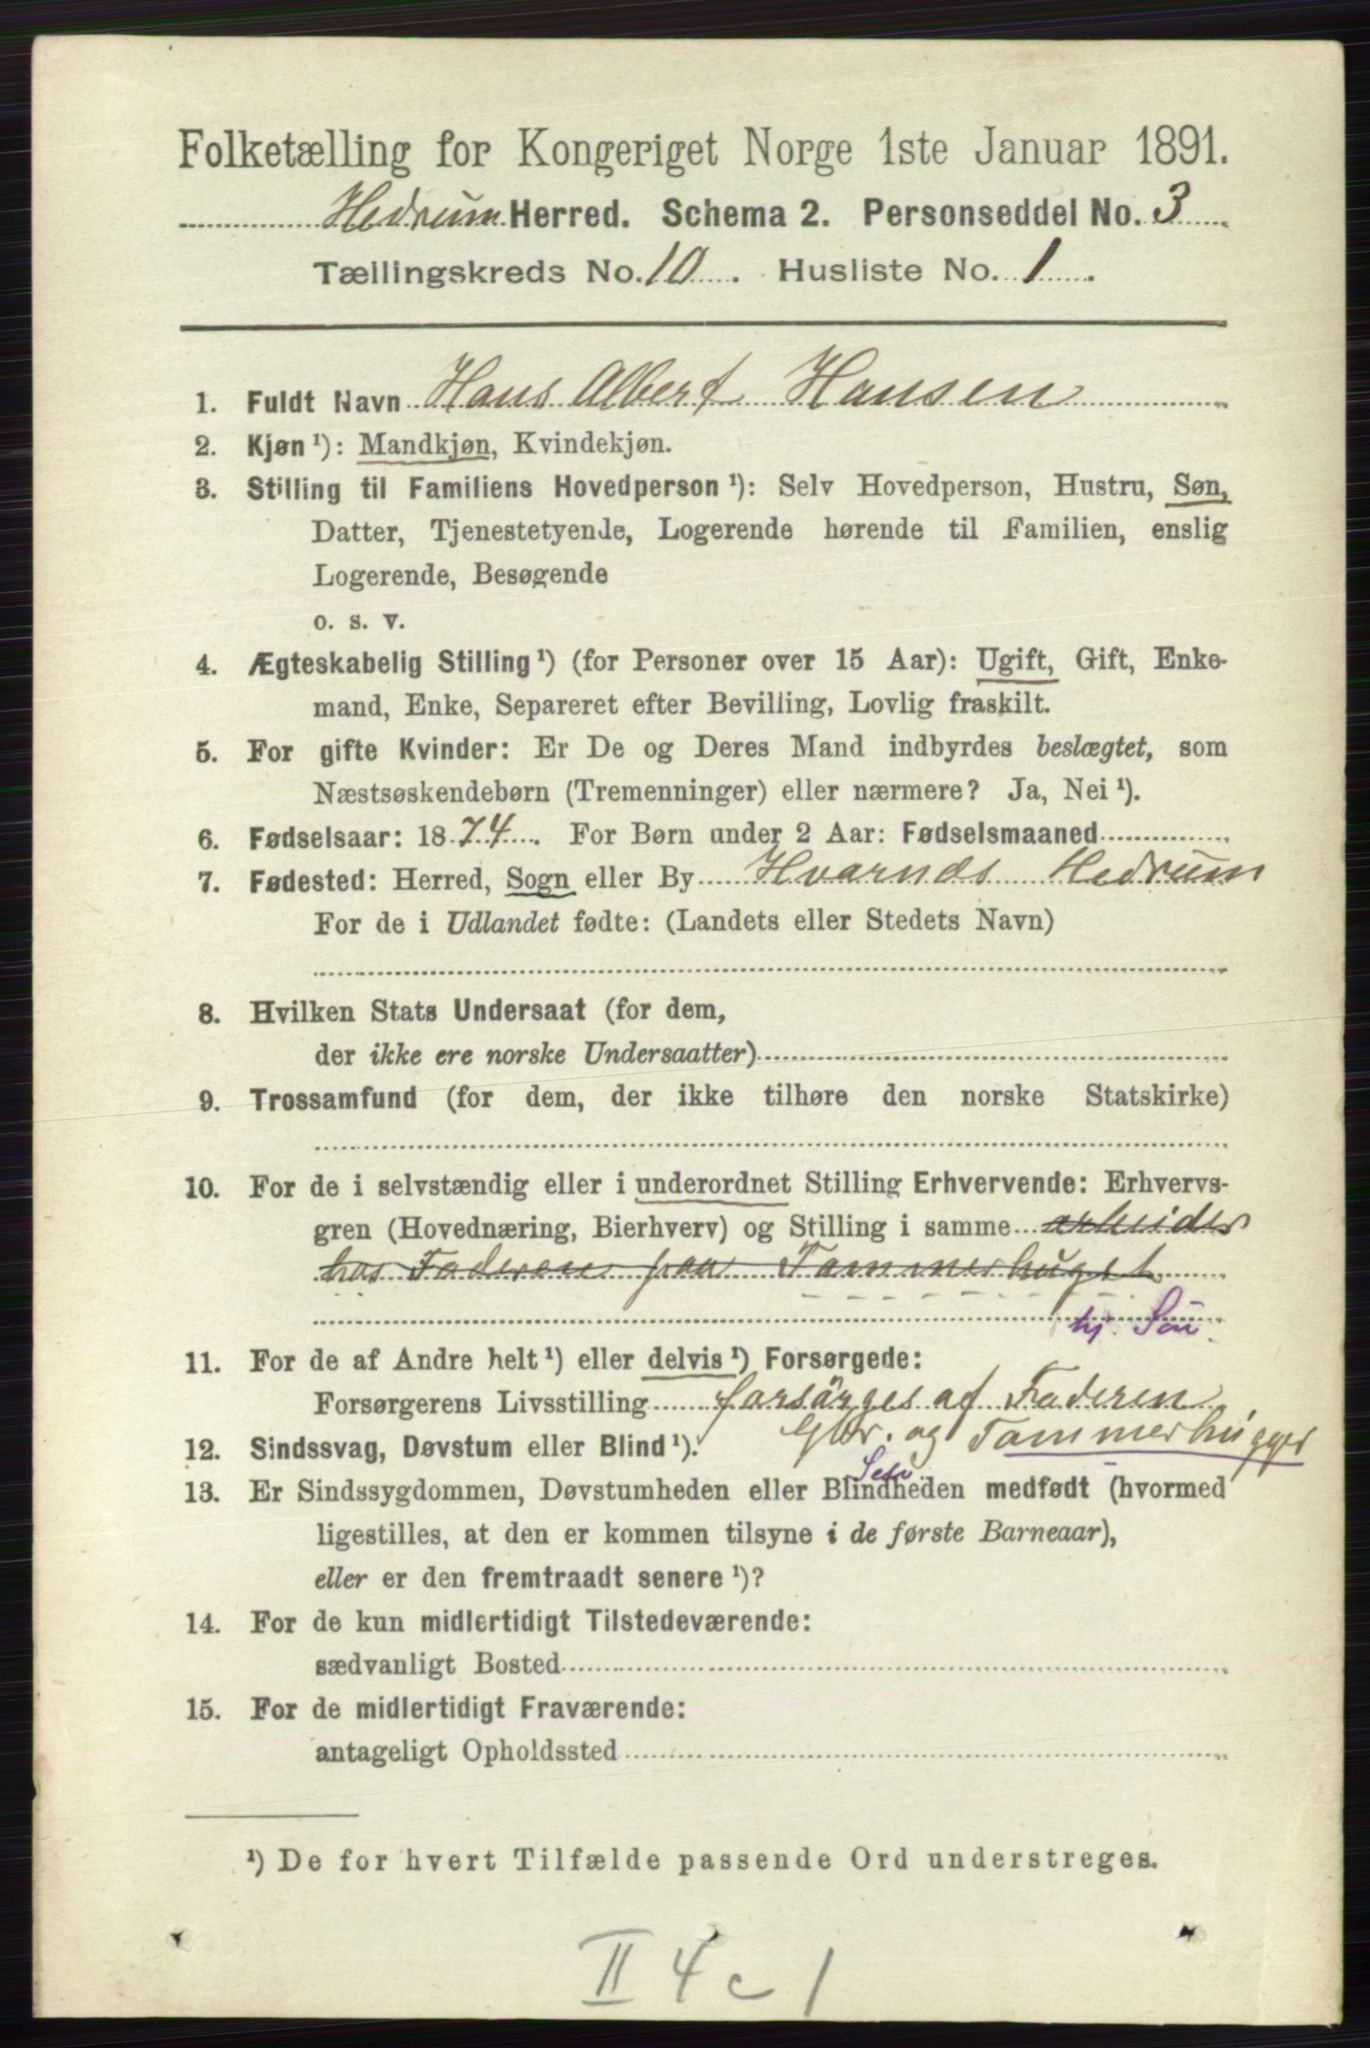 Folketælling for Kongeriget Norge 1ste Januar 1891.
Hedrum Herred. Schema 2. Personseddel No. 3
Tællingskreds No. 10. Husliste No. 1.
1. Fuldt Navn Hans Albert Hansen
2. Kjøn ¹): Mandkjøn, Kvindekjøn.
3. Stilling til Familiens Hovedperson ¹): Selv Hovedperson, Hustru, Søn,
Datter, Tjenestetyende, Logerende hørende til Familien, enslig
Logerende, Besøgende
o. s. v.
4. Ægteskabelig Stilling ¹) (for Personer over 15 Aar): Ugift, Gift, Enke-
mand, Enke, Separeret efter Bevilling, Lovlig fraskilt.
5. For gifte Kvinder: Er De og Deres Mand indbyrdes beslægtet, som
Næstsøskendebørn (Tremenninger) eller nærmere? Ja, Nei ¹).
6. Fødselsaar: 1874. For Børn under 2 Aar: Fødselsmaaned
7. Fødested: Herred, Sogn eller By Hvarnæs Hedrum
For de i Udlandet fødte: (Landets eller Stedets Navn)
8. Hvilken Stats Undersaat (for dem,
der ikke ere norske Undersaatter)
9. Trossamfund (for dem, der ikke tilhøre den norske Statskirke)
10. For de i selvstændig eller i underordnet Stilling Erhvervende: Erhvervs-
gren (Hovednæring, Bierhverv) og Stilling i samme arbeider
hos Faderen paa Tømmerhuget
hj. Søn.
11. For de af Andre helt ¹) eller delvis ¹) Forsørgede:
Forsørgerens Livsstilling forsörges af Faderen
Gbr. og Tømmerhugger
12. Sindssvag, Døvstum eller Blind ¹).
Selv
13. Er Sindssygdommen, Døvstumheden eller Blindheden medfødt (hvormed
ligestilles, at den er kommen tilsyne i de første Barneaar),
eller er den fremtraadt senere ¹)?
14. For de kun midlertidigt Tilstedeværende:
sædvanligt Bosted
15. For de midlertidigt Fraværende:
antageligt Opholdssted
¹) De for hvert Tilfælde passende Ord understreges.
II 4 c 1